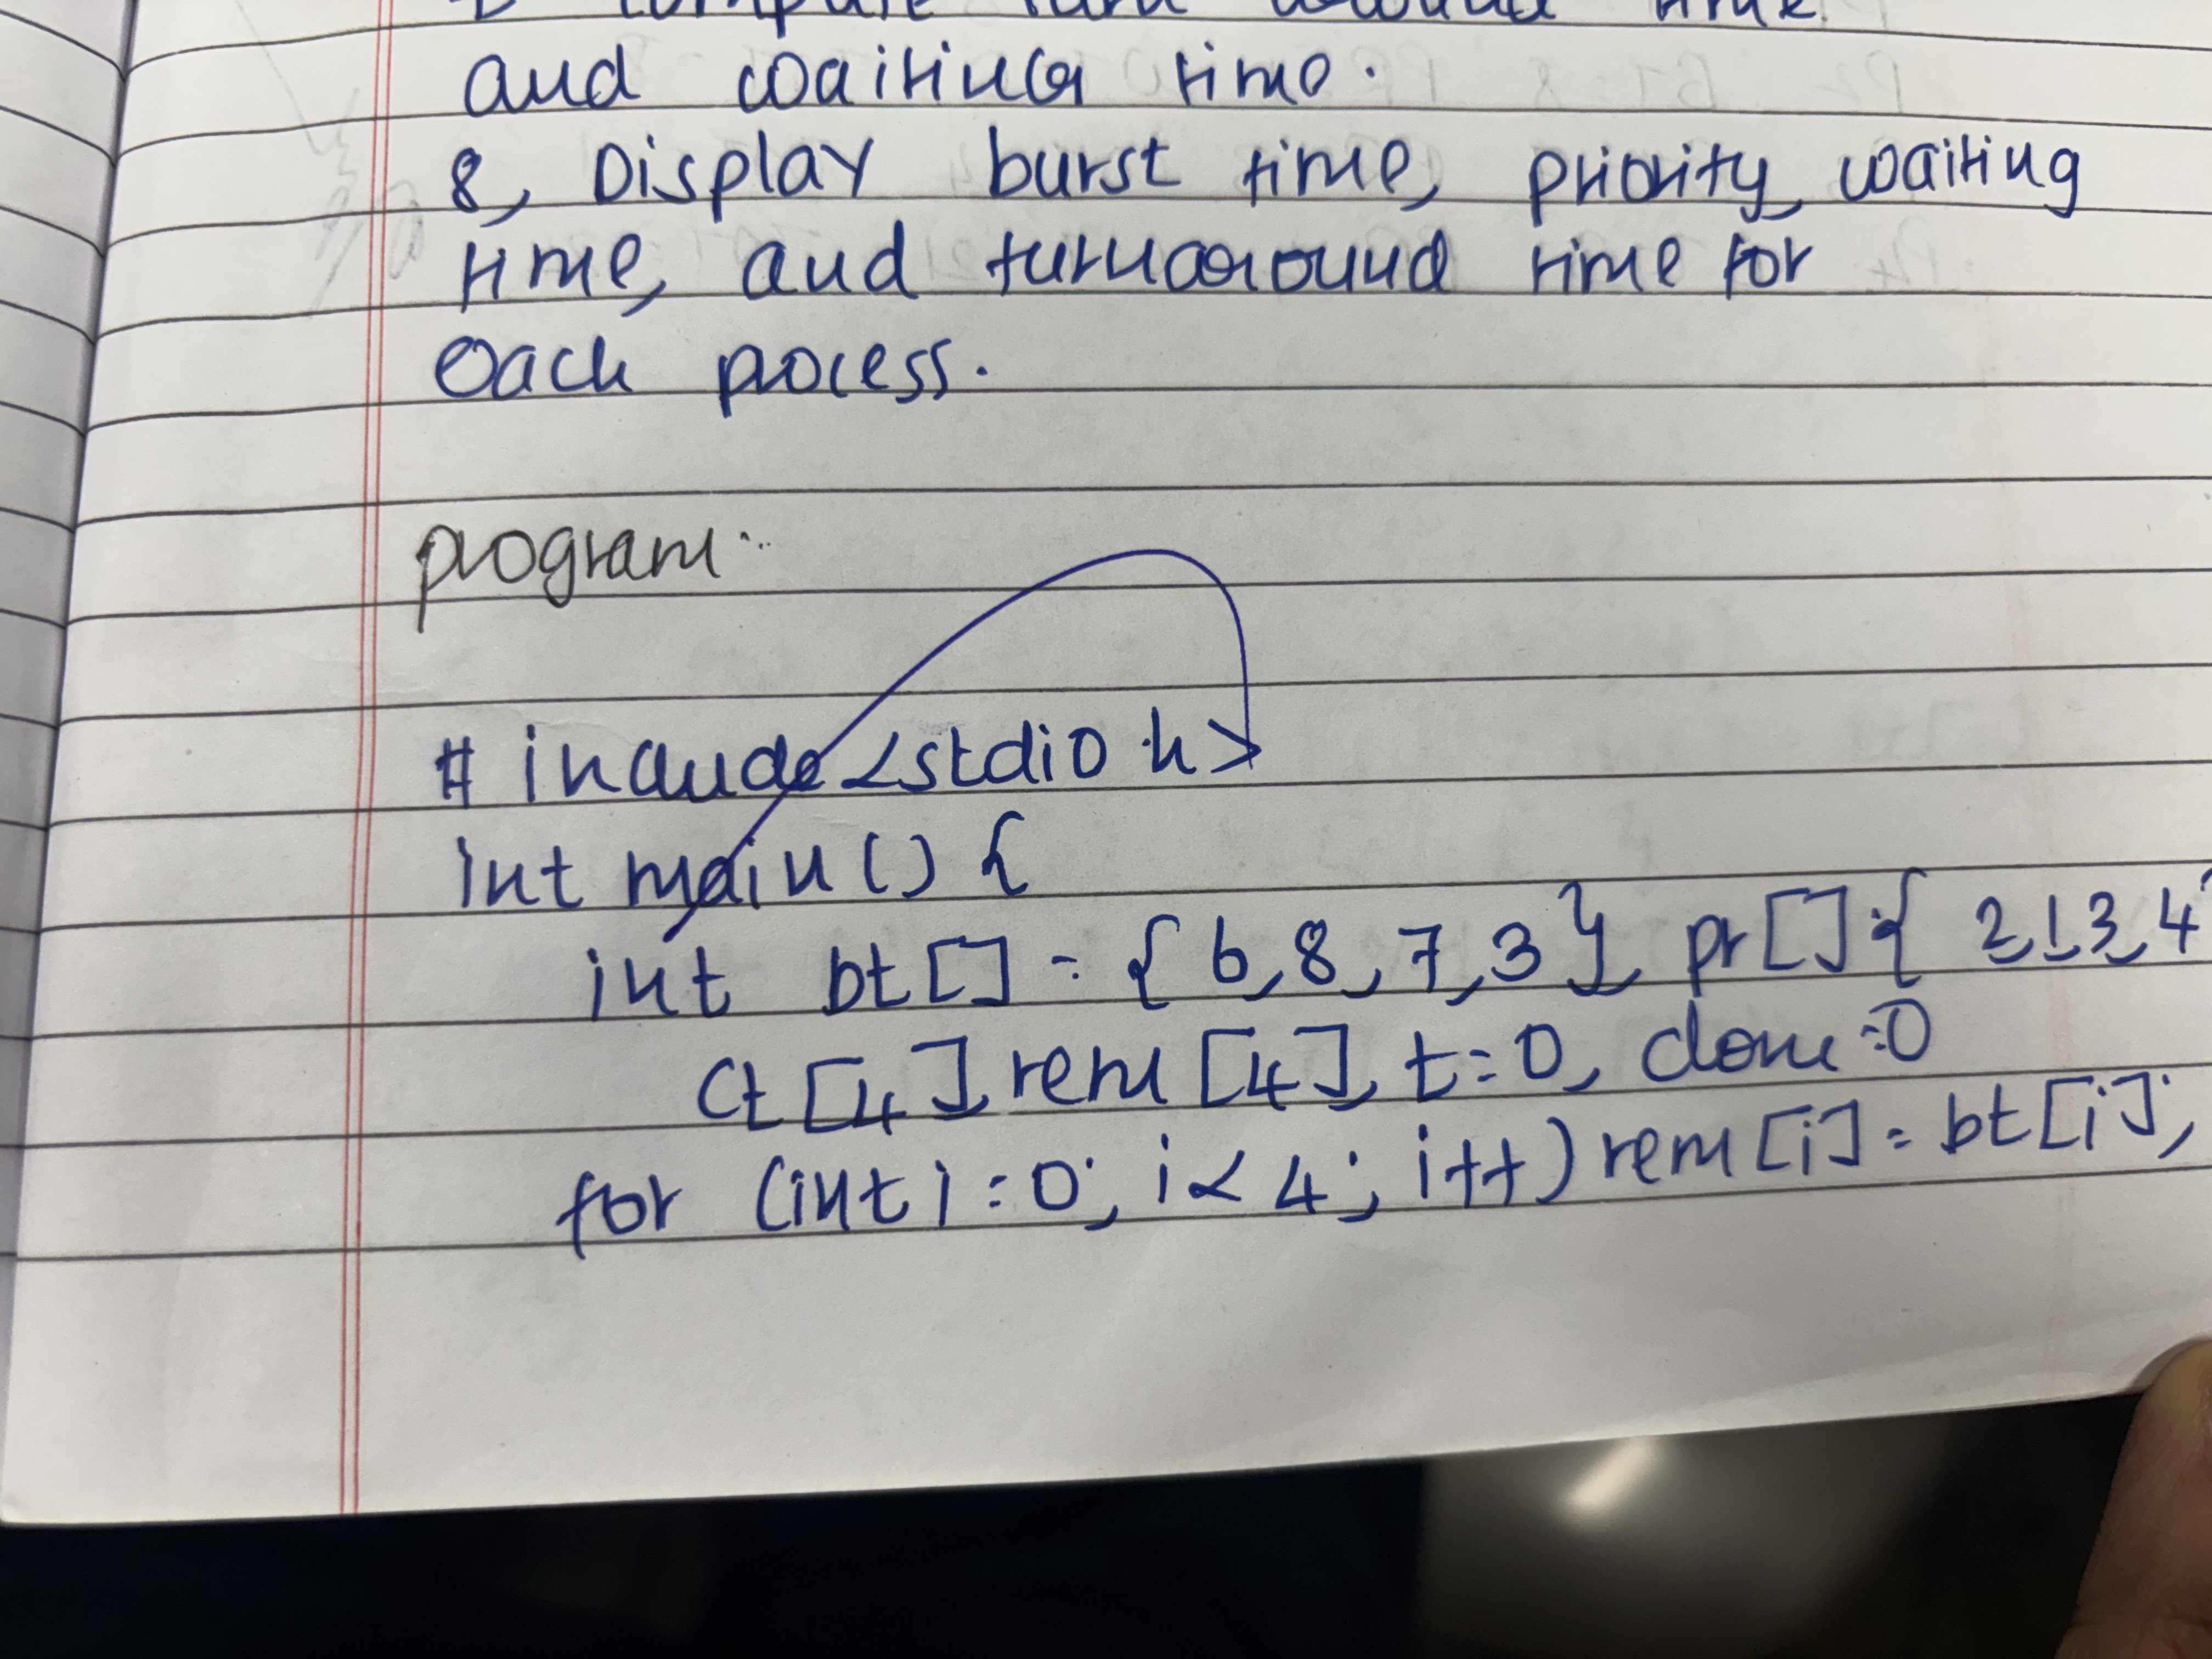 and waiting time.
8, Display burst time, priority, waiting
time, and turnaround time for
each process.
program:
#include <stdio.h>
int main() {
int bt[] = {6,8,7,3}, pr[]={2,1,3,4
Ct[4], rem[4], t=0, done=0
for (int i=0; i<4; i++) rem[i] = bt[i];